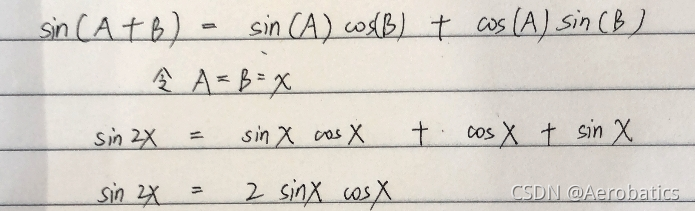 sin(A+B) = sin(A) cos(B) + cos(A) sin(B)
令 A=B=X
sin 2X = sin X cos X + cos X + sin X
sin 2X = 2 sinX cosX
CSDN @Aerobatics